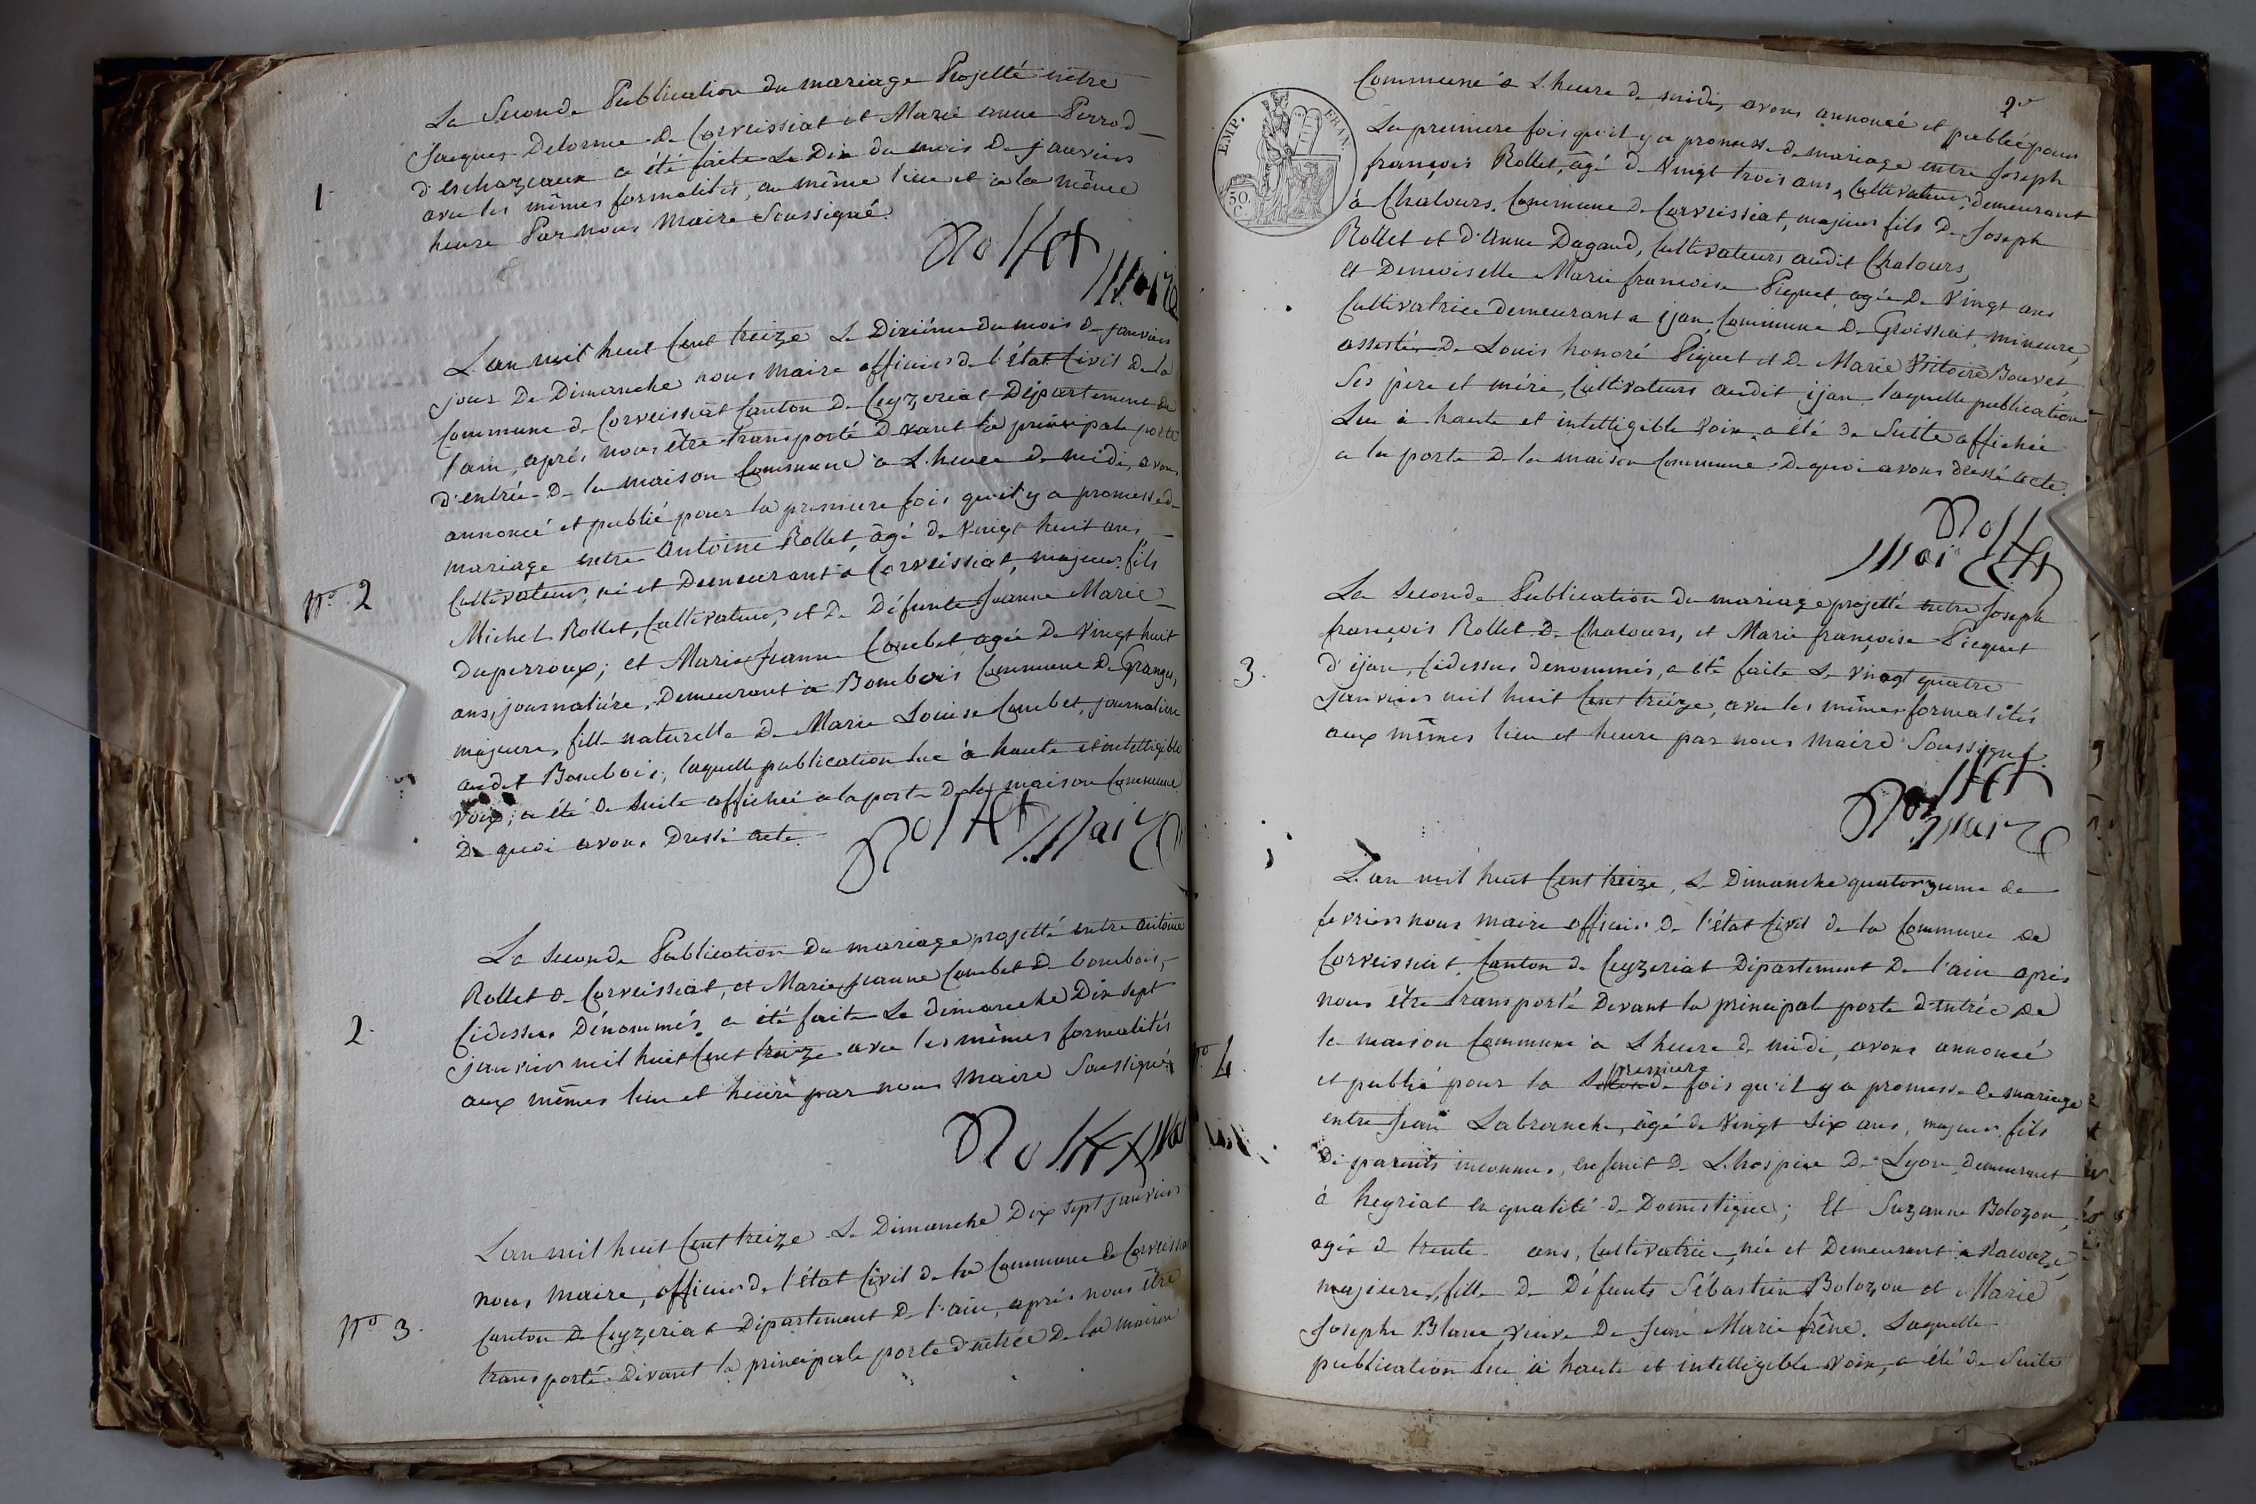 La Seconde Publication du mariage Projetté entre
Jacques Delorme de Corveissiat et Marie anne Perrod
d'eschazeaux a été faite Le Dix du mois De janvier
1.
avec les mêmes formalités, au même lieu et à la même
heure Par nous Maire Soussigné.
Rollet
Maire
L'an mil huit Cent treize Le Dixiéme du mois de janvier
jour De Dimanche nous Maire officier de l'état Civil De la
Commune de Corveissiat Canton De Ceyzeriat Département de
l'ain, après nous être transporté Devant la principale porte
d'entrée De la maison Commune à L'heure de midi, avons
annoncé et publié pour la premiere fois qu'il y a promesse de
mariage entre Antoine Rollet, âgé de Vingt huit ans,
Nº 2
Cultivateur, né et Demeurant à Corveissiat, majeur, fils
Michel Rollet, Cultivateur, et De Défunte Jeanne Marie
Duperroux; et Marie Jeanne Combet agée De Vingt huit
ans, journalière, Demeurant à Bombois Commune De Granges,
majeure, fille naturelle De Marie Louise Combet, journaliere
audit Bombois; laquelle publication lue à haute et intelligible
voix; a été De Suite affichée a la porte De la maison Commune
De quoi avons Dressé acte.
Rollet Maire
La Seconde Publication Du mariage projetté entre antoine
Rollet de Corveissiat, et Marie Jeanne Combet De bombois,
2.
Cidessus Dénommés a été faite Le dimanche Dix Sept
janvier mil huit Cent treize avec les mêmes formalités
aux mêmes lieu et heure par nous Maire Soussigné.
Rollet Mai
L'an mil huit Cent treize Le Dimanche Dix Sept janvier
nous Maire, officier de l'état Civil de la Commune de Corveissia
Nº 3.
Canton De Ceyzeriat Département De l'ain, après nous être
transporté Devant la principale porte d'entrée De la maison
EMP. FRAN.
50. C.
2e
Commune à L'heure de midi, avons annoncé et publié pour
La premiere fois qu'il y a promesse de mariage entre Joseph
françois Rollet, agé de Vingt trois ans, Cultivateur, demeurant
à Chalours, Commune de Corveissiat, majeur fils De Joseph
Rollet et d'Anne Dagaud, Cultivateurs audit Chalours,
et Demoiselle Marie francoise Piquet agée De Vingt ans
Cultivatrice demeurant a ijan Commune De Groissiat, mineure,
assistée De Louis honoré Piquet et De Marie Vitoire Bouvet
Ses père et mère, Cultivateurs audit ijan laquelle publication
Lue à haute et intelligible voix a été de Suite affichée
a la porte De la maison Commune De quoi avons dressé acte.
Rollet
Maire
La Seconde Publication du mariage projetté entre Joseph
françois Rollet De Chalours, et Marie françoise Picquet
3.
d'ijan, Cidessus denommés, a été faite Le Vingt quatre
janvier mil huit Cent treize, avec les mêmes formalités
aux mêmes lieu et heure par nous Maire Soussigné.
Rollet
Maire
L'an mil huit Cent treize, Le Dimanche quatorzieme de
fevrier nous maire officier De l'état Civil de la Commune de
Corveissiat Canton de Ceyzeriat Département De l'ain après
nous être transporté Devant la principal porte d'entrée de
la maison Commune à L'heure de midi, avons annoncé
premiere
Nº 4
et publié pour la Seconde fois qu'il y a promesse de mariage
entre Jean Labranche, âgé de Vingt Six ans, majeur fils
De parents inconnus, enfant De L'hospice De Lyon, demeurant
à heyriat en qualité de Domestique; Et Suzanne Bolozon,
agée de trente ans, Cultivatrice, née et Demeurant a
majeure, fille De Défunts Sébastien Bolozon et Marie
Josephe Blanc, Veuve De Jean Marie frêne. Laquelle
publication Lue à haute et intelligible voix, a été de Suite